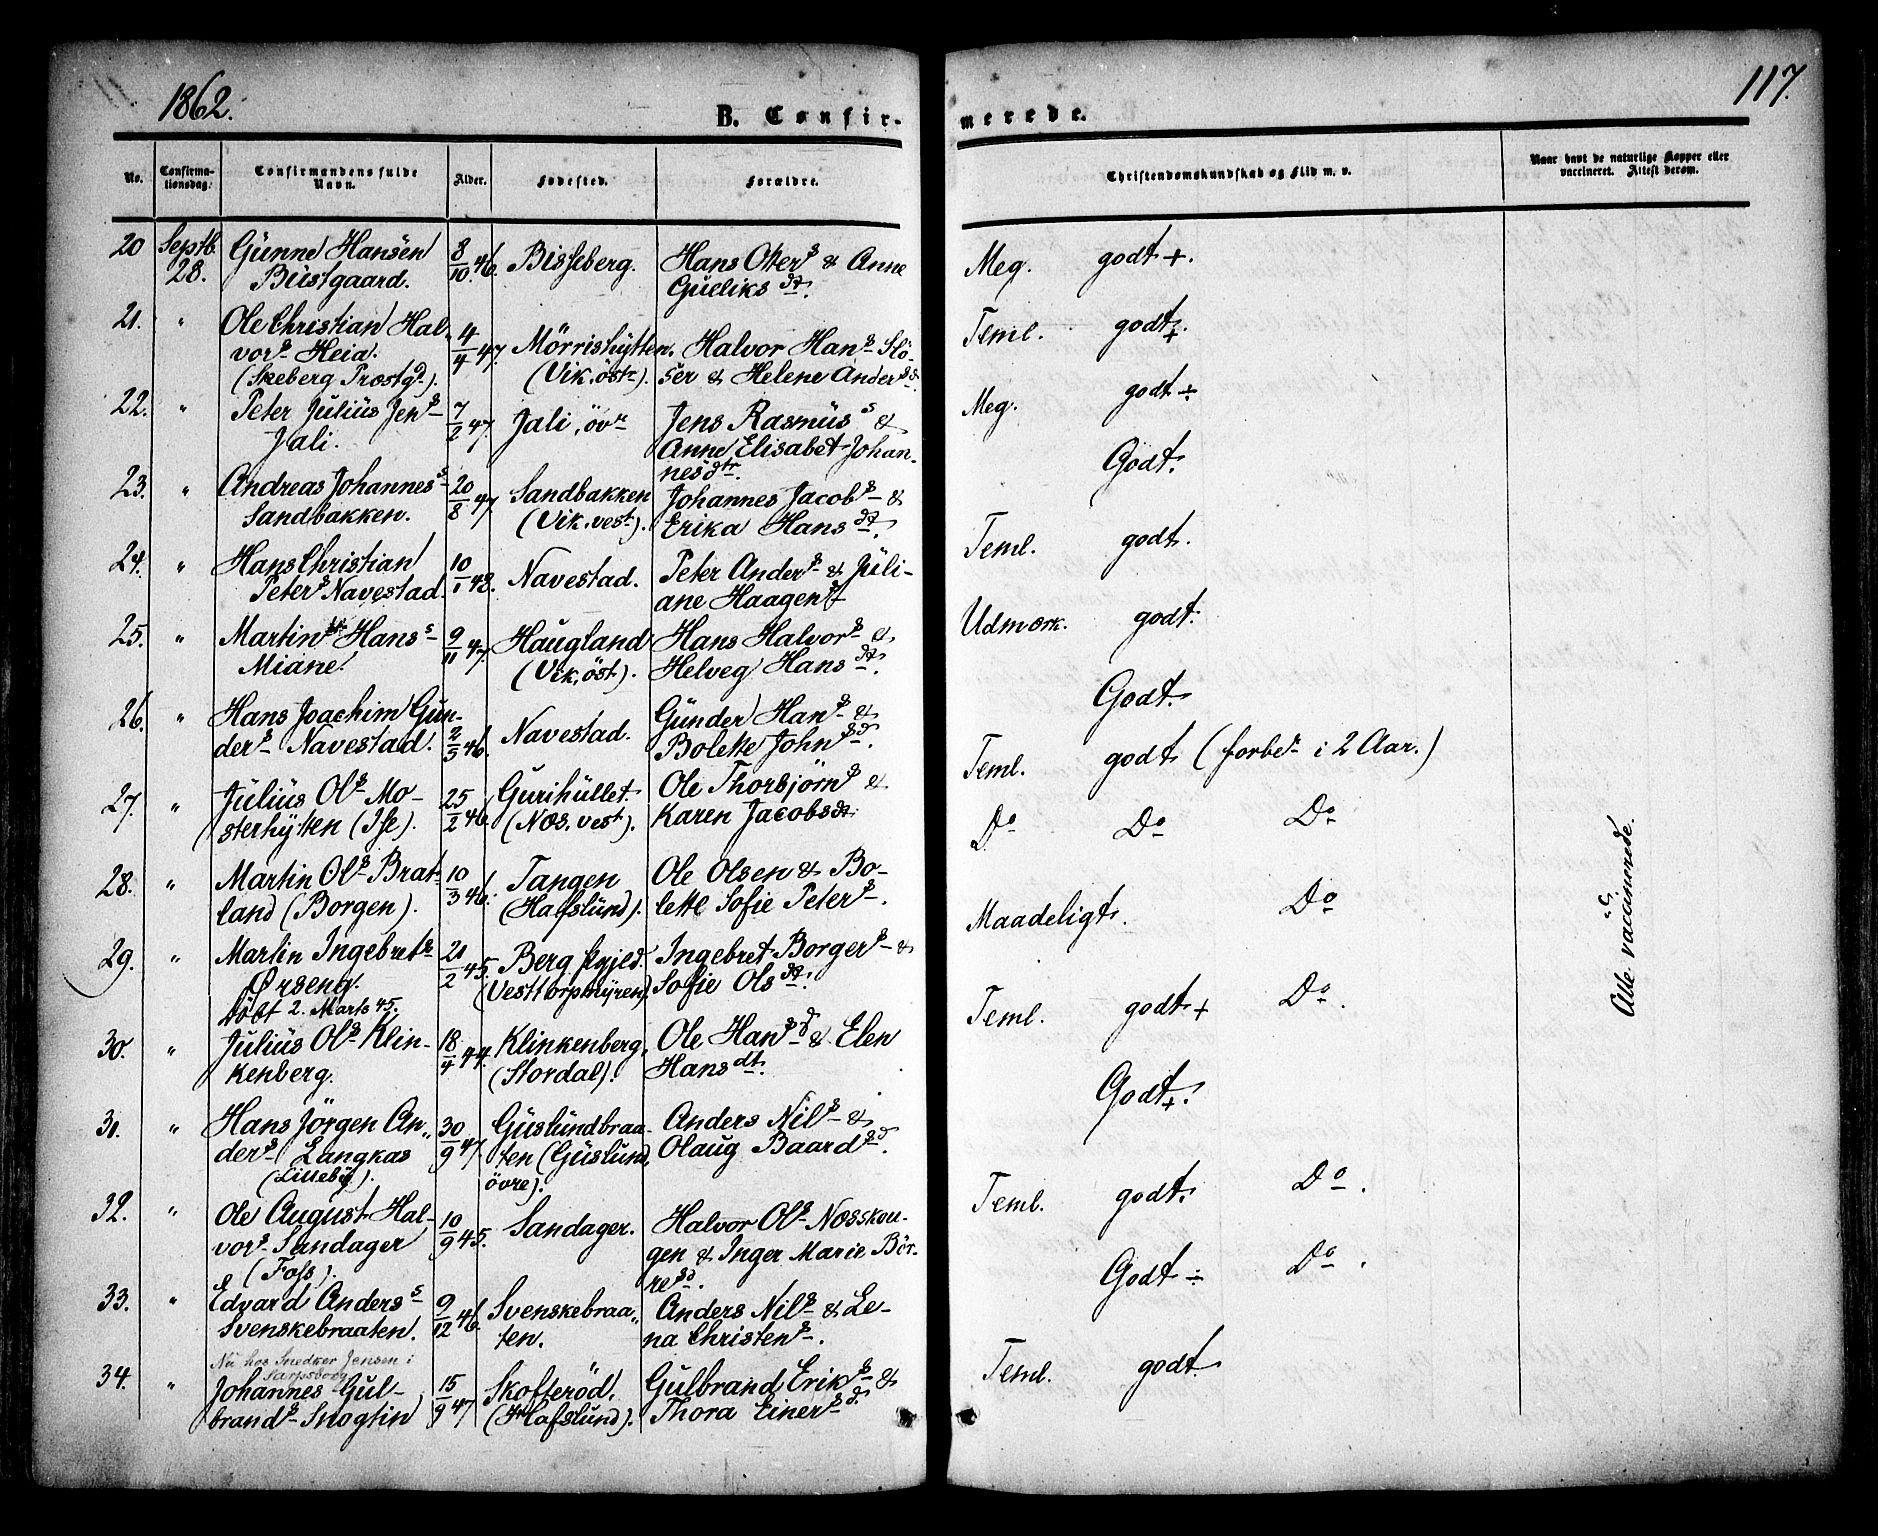 1862.
117.
B. Confirmerede.
No.
Confirmationsdag.
Confirmandens fulde Navn.
Alder.
Fødested.
Forældre.
Christendomskundskab og Flid m. v.
Naar havt de naturlige Kopper eller vaccineret. Attest derom.
20 Septb. 28. Gunne Hansen Bustgaard. 8/10 46. Bisseberg. Hans Oters & Anne Guliks dt. Meg. godt +.
21. " Ole Christian Halvors Heia. (Skeberg Præstgd). 4/4 47. Mörrishytten. (Vik, östr). Halvor Hans Slöser & Helene Andersd. Teml. godt +.
22. " Peter Julius Jens Jali. 7/2 47. Jali, övr Jens Rasmus s & Anne Elisabet Johannesdtr. Meg. godt ÷
23. " Andreas Johannes s Sandbakken. 20/8 47. Sandbakken (Vik, vest). Johannes Jacobs & Erika Hans dt. Godt.
24. " Hans Christian Peters Navestad. 10/1 48. Navestad. Peter Anders & Juliane Haagens Teml. godt.
25. " Martin Hans s Miane. 9/11 47. Haugland (Vik, öst). Hans Halvors & Helveg Hans dt. Udmærk. godt.
26. " Hans Joachim Gunders Navestad. 2/3 46. Navestad. Gunder Hans & Bolette Johnsd. Godt.
27. " Julius Ols Mosterhytten (Ise). 25/2 46. Gurihullet. (Næs, vest). Ole Thorbjörns & Karen Jacobsdt. Teml. godt (forber i 2 Aar.)
Do Do Do
28. " Martin Ols Bratland (Borgen). 10/3 46. Tangen (Hafslund). Ole Olsen & Bolette Sofie Peters. Maadeligt. Do
29. " Martin Ingebrets Ørseng. Döbt 2. Marts 45. 21/2 45. Berg kjed. (Vesttorpmyren). Ingebret Borgers & Sofie Ols dt. Teml. godt + Do.
30. " Julius Ols Klinkenberg. 18/4 44. Klinkenberg. (Stordal). Ole Hans & Elen Hans dt. Godt +.
31. " Hans Jörgen Anders Langkas (Lilleby). 30/9 47. Guslundbraaten (Guslund, övre). Anders Nils & Olaug Baardsd. Teml. godt. Do.
32. " Ole August Halvors Sandager (Foss). 10/9 45. Sandager. Halvor Ols Næsskougen & Inger Marie Börresd. Godt ÷ Do.
33. " Edvard Anders s Svenskebraaten. 9/12 46. Svenskebraaten. Anders Nils & Lena Christens. Teml. godt.
Nu hos Snedker Jensen i Sarpsborg
34. " Johannes Gulbrands Snogtin 15/9 47 Skofteröd. (Hafslund). Gulbrand Eriks & Thora Einersd.
Alle vaccinerede.